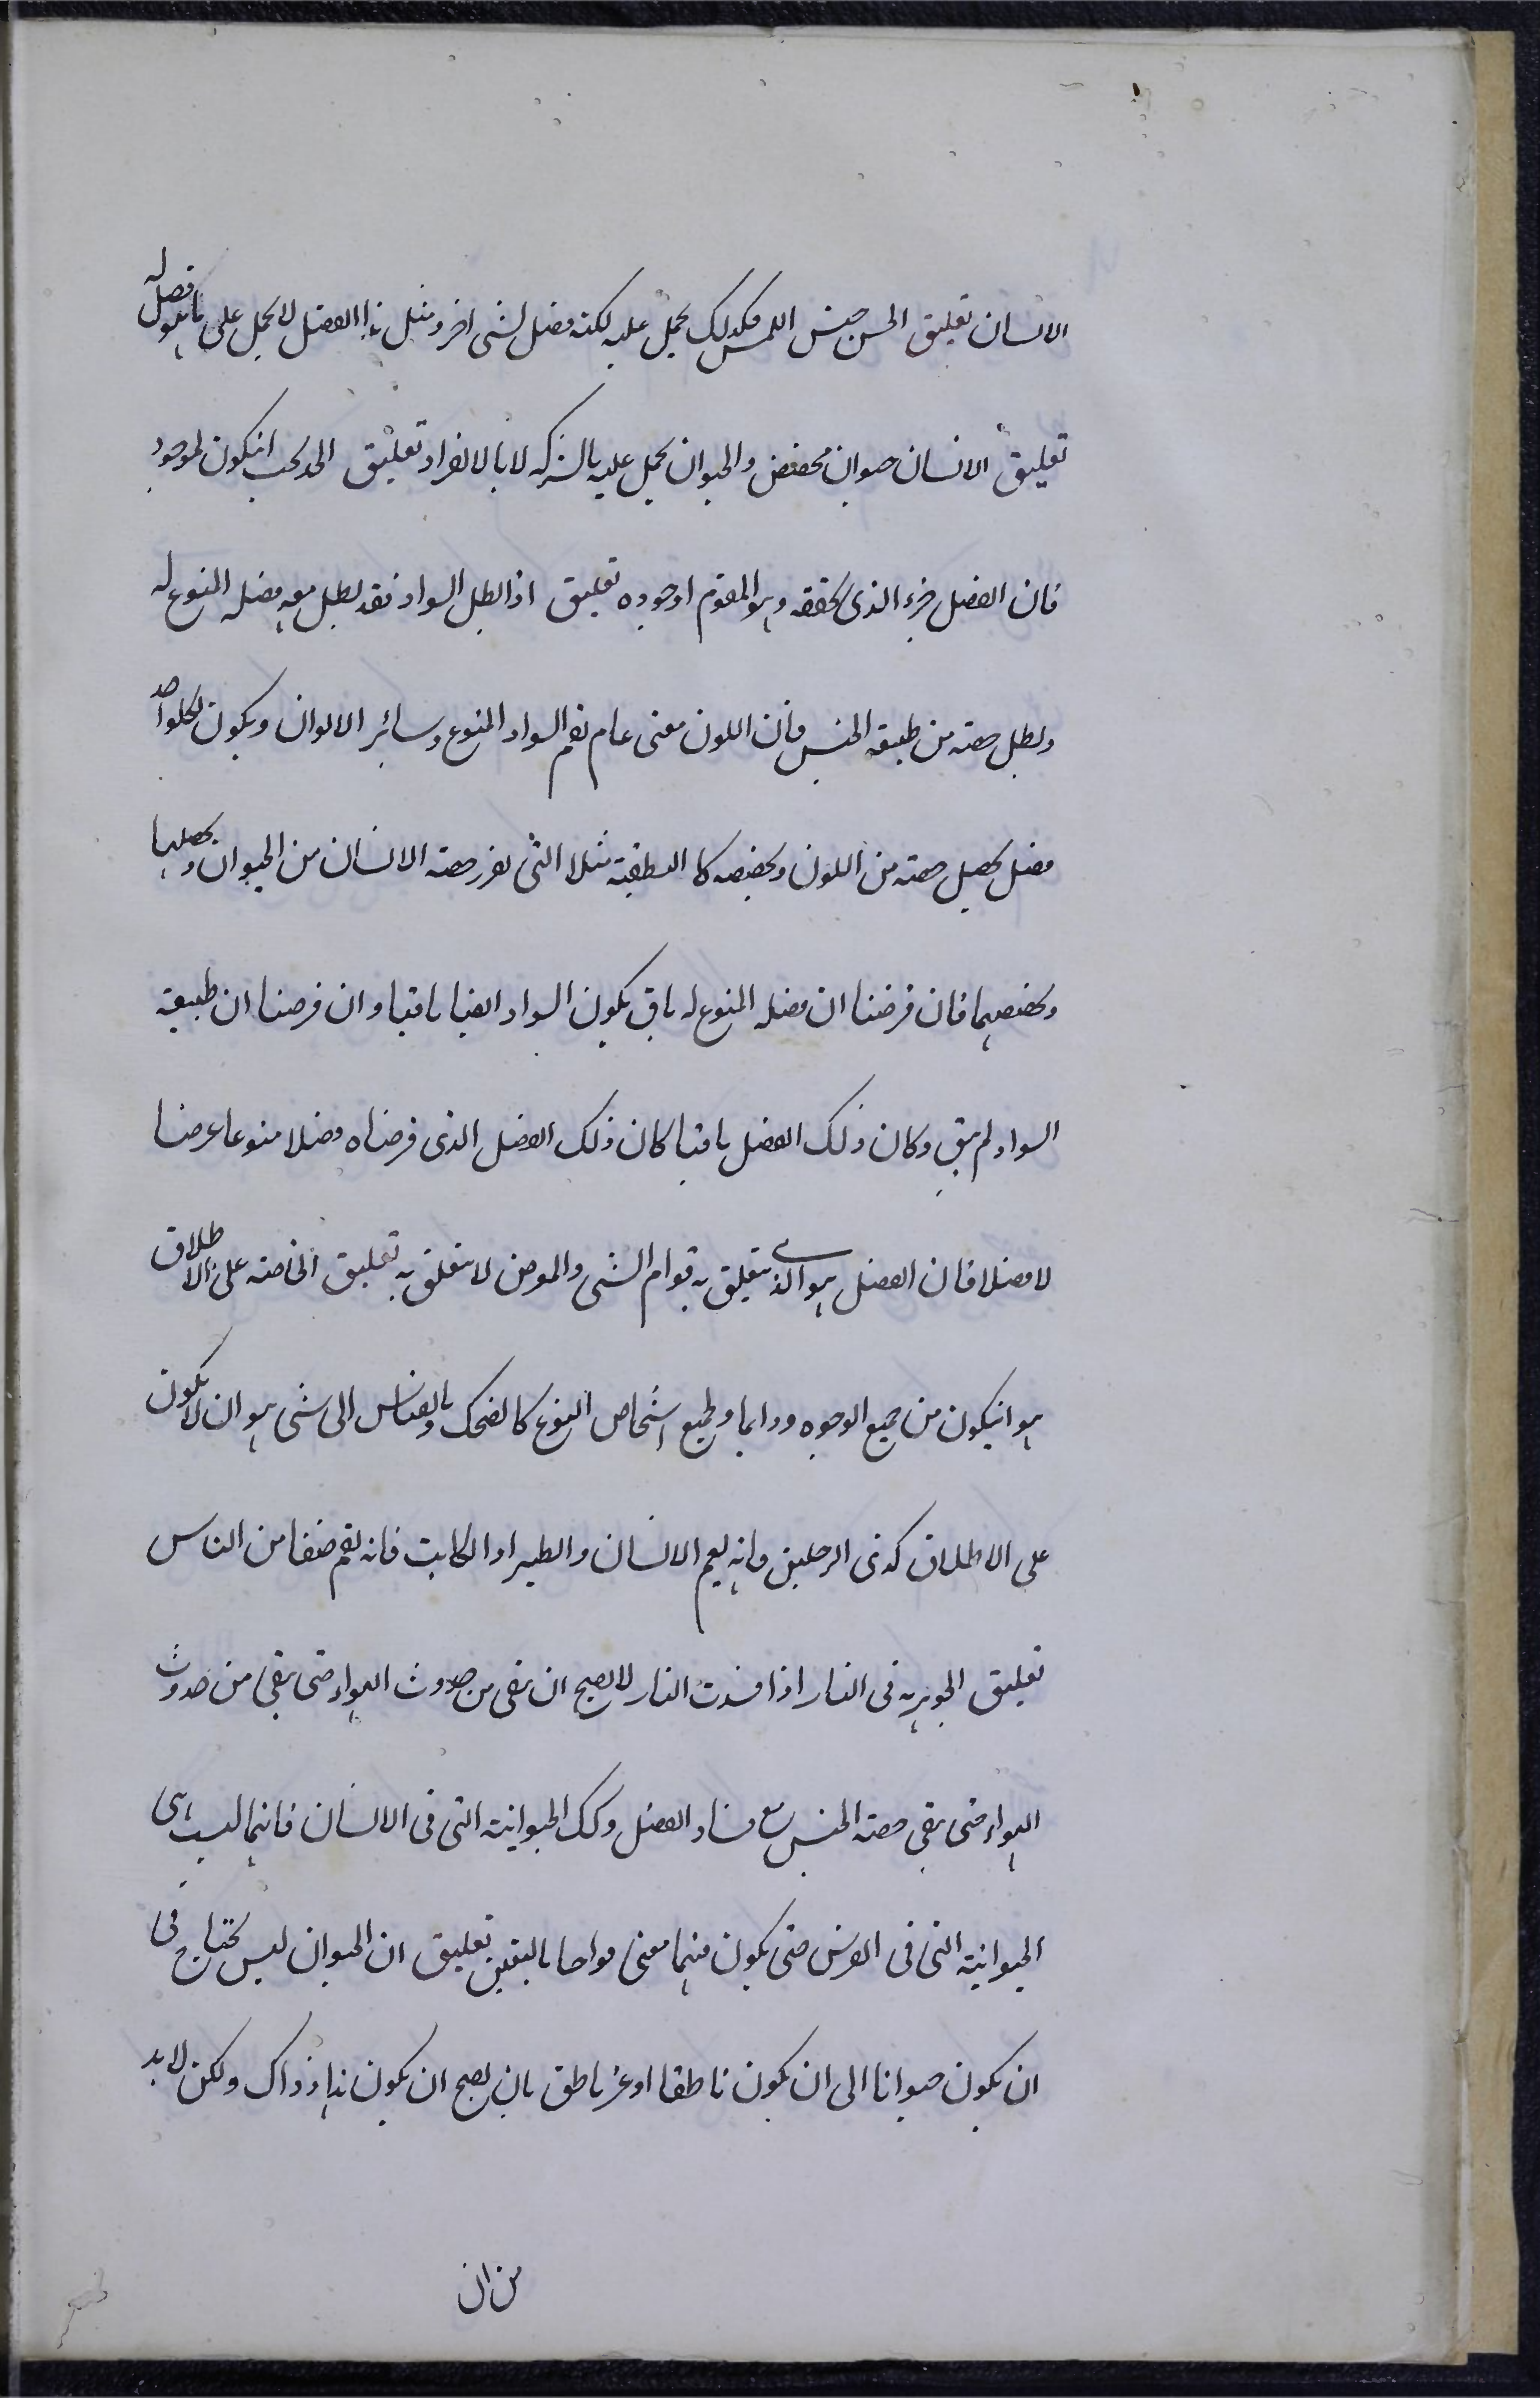 الانسان تعليق الحس جنس اللمس فكذلك يحمل عليه لكنه فصل لشى اخر ومثل هذا الفصل لا يحمل على ما هو فصل له
تعليق الانسان حيوان مخصص والحيوان يحمل عليه بالشركه لا بالانفراد تعليق الحد يجب انيكون لموجود
فان الفصل جزء الذى يحققه وهو المقوم لوجوده تعليق اذا بطل السواد فقد بطل معه فصله المنوع له
وبطل حصته من طبيعة الجنس فان اللون معنى عام يعم السواد المنوع وسائر الالوان ويكون لكلواحد
فصل يحصل حصته من اللون ويخصصه كالنطقية مثلا التى تفرز حصة الانسان من الحيوان ويحصلها
ويخصصها فان فرضنا ان فصله المنوع له باق يكون السواد ايضا باقيا وان فرضنا ان طبيعة
السواد لم يبق وكان ذلك الفصل باقيا كان ذلك الفصل الذى فرضناه فصلا منوعا عرضا
لا فصلا فان الفصل هو الذى يتعلق به قوام الشى والعرض لا يتعلق به تعليق الخاصة على الاطلاق
هو انيكون من جميع الوجوه ودايما ولجميع اشخاص النوع كالضحك وبالقياس الى شى هو ان لا يكون
على الاطلاق كذى الرجلين فانه يعم الانسان والطير او الكاتب فانه يعم صنفا من الناس
تعليق الجوهرية فى النار اذا فسدت النار لا يصح ان يبقى من حدوث الهواء حتى يبقى من حدوث
الهواء حتى يبقى حصة الجنس مع فساد الفصل وكك الحيوانية التى فى الانسان فانها ليست هى
الحيوانية التى فى الفرس حتى يكون منهما معنى واحدا باليقين تعليق ان الحيوان ليس يحتاج فى
ان يكون حيوانا الى ان يكون ناطقا او غير ناطق بان يصح ان يكون هذا وذاك ولكن لا بد
من ان